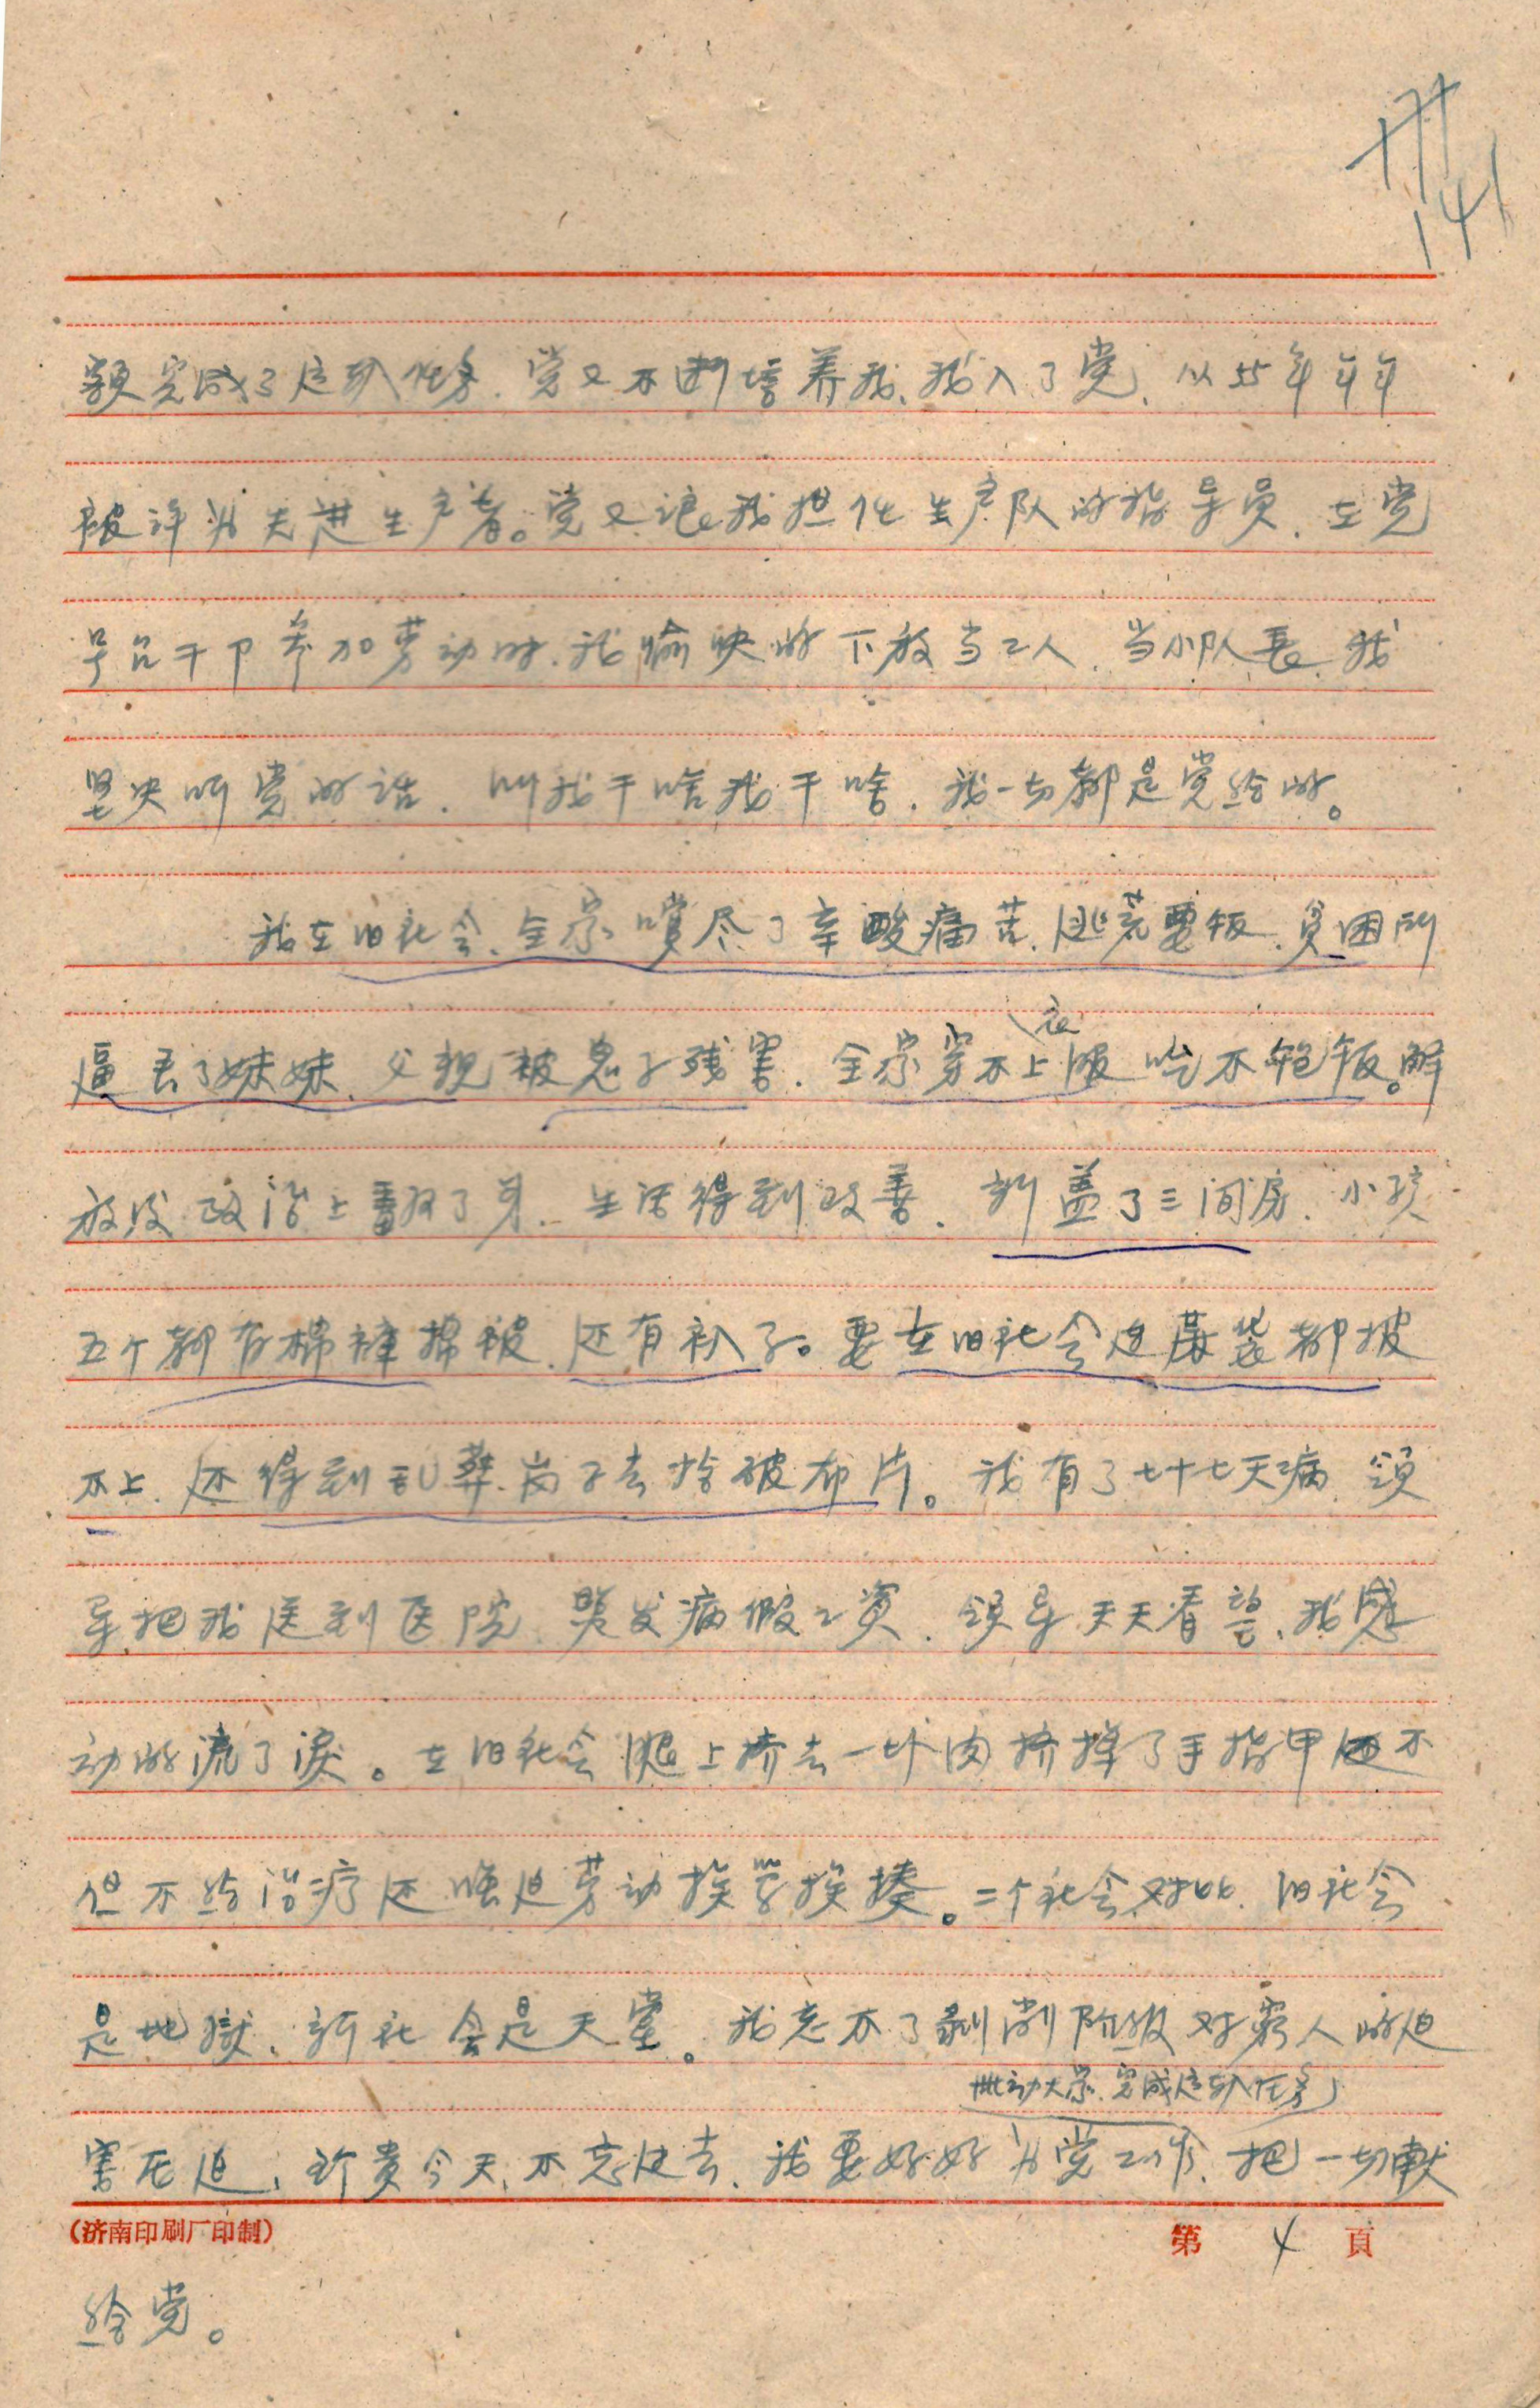 141
额完成了运输任务.党又不断培养我、我入了党、从55年年年
被评为先进生产者。党又提我担任生产队的指导员、在党
号召干卩参加劳动时、我愉快的下放当工人、当小队长、我
坚决听党的话、叫我干啥我干啥、我一切都是党给的。
我在旧社会、全家嚐尽了辛酸痛苦、逃荒要饭、贫困所
逼丢了妹妹、父亲被鬼子残害、全家穿不上衣服 吃不饱饭。解
放后政治上翻了身、生活得到改善、新盖了三间房、小孩
五个都有棉裤棉被、还有袄子。要在旧社会连蔴袋都披
不上、还得到乱葬岗子去拾破布片。我有了七十七天病、领
导把我送到医院、照发病假工资、领导天天看望、我感
动的流了淚。在旧社会腿上挤去一块肉挤掉了手指甲
但不给治疗还强迫劳动挨骂挨揍。二个社会对比、旧社会
是地狱、新社会是天堂。我忘不了剥削阶级对穷人的迫
害压迫、珍贵今天、不忘过去、我要好好为党工作、带动大家、完成运输任务、把一切献
(济南印刷厂印制)
第 4 頁
给党。